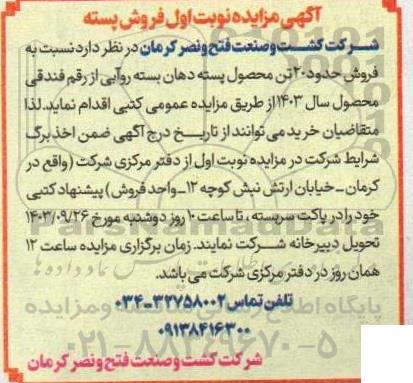 آگهی مزایده نوبت اول فروش پسته
شرکت کشت و صنعت فتح و نصر کرمان در نظر دارد نسبت به
فروش حدود ۲۰ تن محصول پسته دهان بسته روآبی از رقم فندقی
محصول سال ۱۴۰۳ از طریق مزایده عمومی کتبی اقدام نماید. لذا
متقاضیان خرید می توانند از تاریخ درج آگهی ضمن اخذ برگ
شرایط شرکت در مزایده نوبت اول از دفتر مرکزی شرکت (واقع در
کرمان - خیابان ارتش نبش کوچه ۱۲ - واحد فروش) پیشنهاد کتبی
خود را در پاکت سربسته ، تا ساعت ۱۰ روز دوشنبه مورخ ۱۴۰۳/۰۹/۲۶
تحویل دبیرخانه شرکت نمایند. زمان برگزاری مزایده ساعت ۱۲
همان روز در دفتر مرکزی شرکت می باشد.
تلفن تماس ۳۲۷۵۸۰۰۲-۰۳۴
۰۹۱۳۸۴۱۶۳۰۰
شرکت کشت و صنعت فتح و نصر کرمان
ParsNamadData
پایگاه اطلاع رسانی مناقصه و مزایده
۰۲۱-۸۸۳۴۹۶۷۰-۵